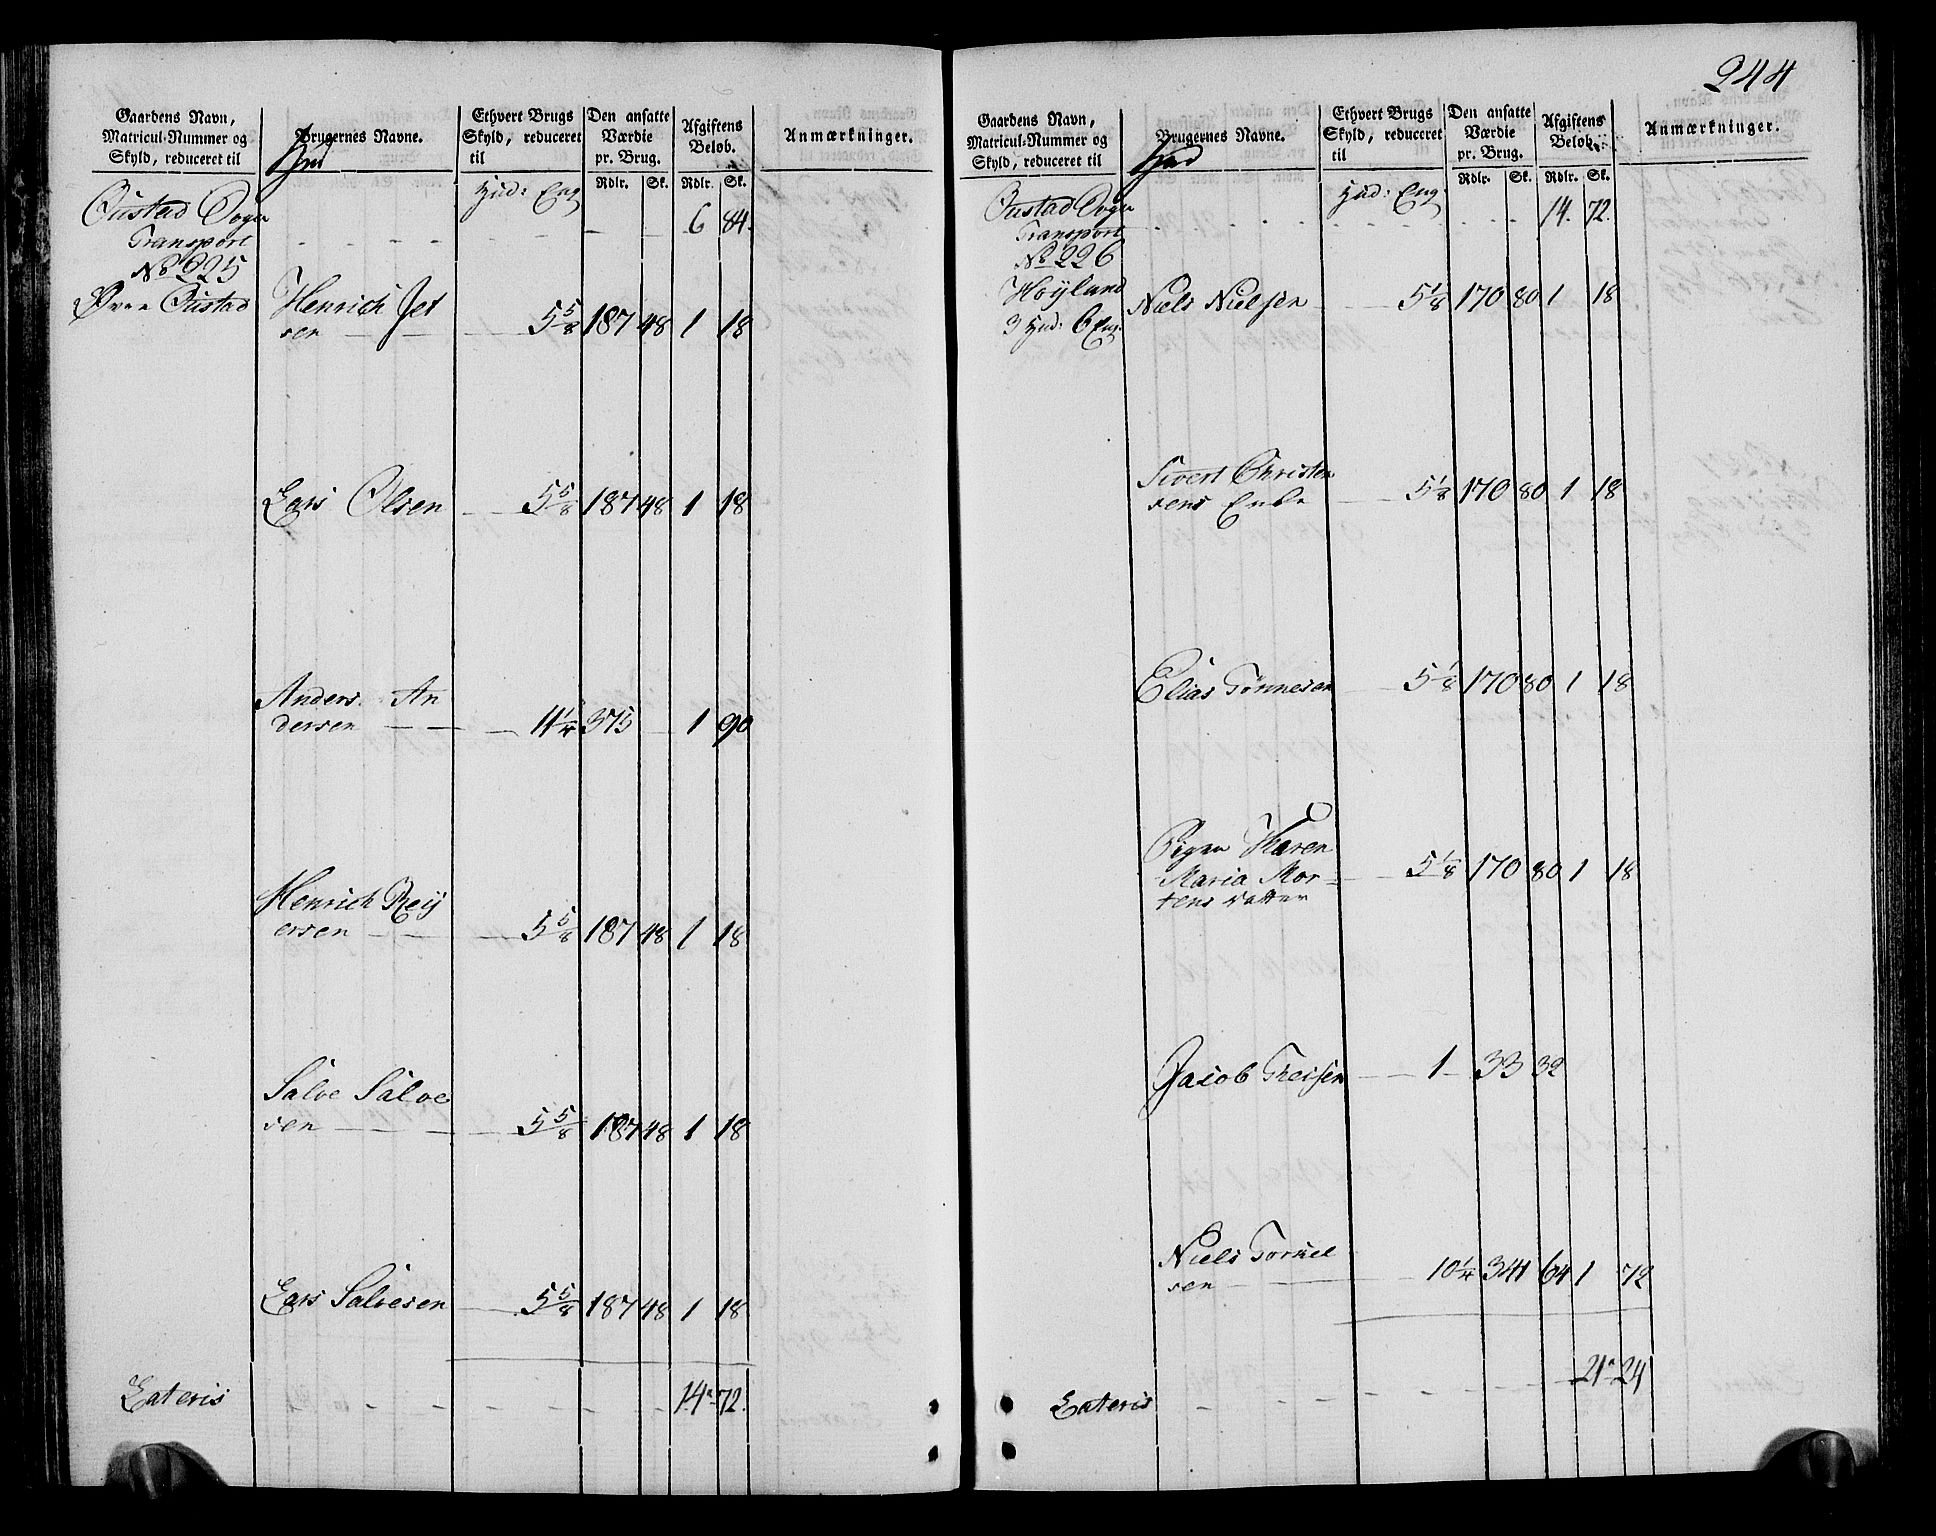 244
Gaardens Navn,
Matricul-Nummer og
Skyld, reduceret til
Brugernes Navne.
Ethvert Brugs
Skyld, reduceret
til
Den ansatte
Værdie
pr. Brug.
Rdlr. Sk.
Afgiftens
Beløb.
Rdlr. Sk.
Anmærkninger.
Hud: Eng
Oustad Sogn
Transport - - - - - - - 6 84.
No 225
Øvre Oustad Henrich Jet
sen - - 5 5/8 187 48 1 18
Lars Olsen - - 5 5/8 187 48 1 18
Anders An
dersen - - 11 1/4 375 - 1 90
Henrich Reij
ersen - - 5 5/8 187 48 1 18
Salve Salve
sen - - - 5 5/8 187 48 1 18
Lars Salvesen - 5 5/8 187 48 1 18
Lateris - - - - - - 14 72.
Gaardens Navn,
Matricul-Nummer og
Skyld, reduceret til
Brugernes Navne.
Ethvert Brugs
Skyld, reduceret
til
Den ansatte
Værdie
pr. Brug.
Rdlr. Sk.
Afgiftens
Beløb.
Rdlr. Sk.
Anmærkninger.
Hud: Eng
Oustad Sogn
Transport - - - - - - - 14. 72.
No 226
Høyland
3 Hud: 6 Eng:
Niels Nielsen - - 5 1/8 170 80 1 18
Sivert Christen
sens Enke - - 5 1/8 170 80 1 18
Elias Tønnesen - - 5 1/8 170 80 1 18
Pigen Karen
Maria Mor-
tens datter - - 5 1/8 170 80 1 18
Jacob Treisen - 1 - 33 32
Niels Torkel
sen - - 10 1/4 341 64 1 72
Lateris - - - - - - 21 24